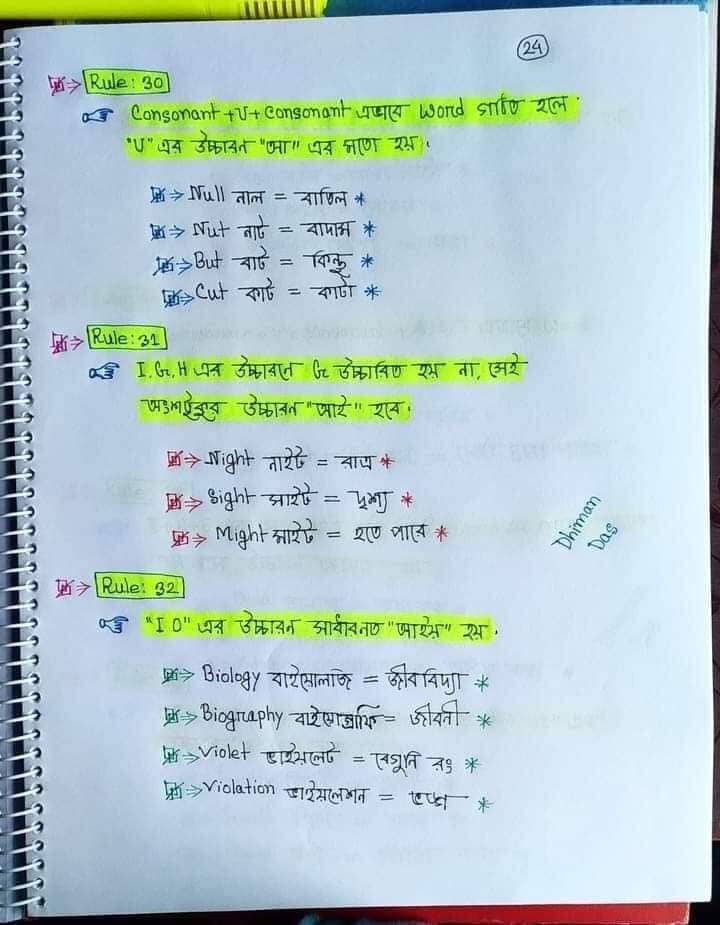 24
Rule: 30
Consonant + U + Consonant এভাবে word গঠিত হলে
"U" এর উচ্চারন "আ" এর মতো হয়।
Null নাল = বাতিল *
Nut নাট = বাদাম *
But বাট = কিন্তু *
Cut কাট = কাটা *
Rule: 31
I.G.H এর উচ্চারনে G উচ্চারিত হয় না, সেই
অংশটুকুর উচ্চারন "আই" হবে।
Night নাইট = রাত *
Sight সাইট = দৃশ্য *
Might মাইট = হতে পারে *
Dhiman
Das
Rule: 32
"I O" এর উচ্চারন সাধারনত "আইয়" হয়.
Biology বাইয়োলজি = জীববিদ্যা *
Biography বাইয়োগ্রাফি = জীবনী *
Violet ভাইয়লেট = বেগুনি রং *
Violation ভাইয়লেশন = *